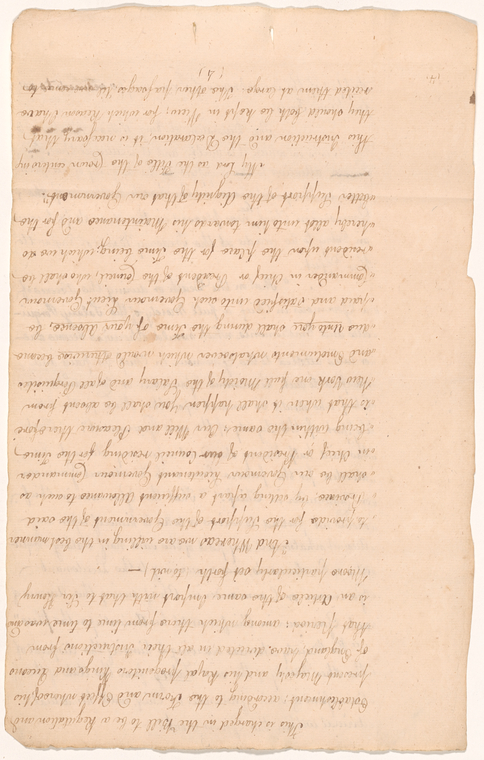 This is charged in the Bill to be a Regulation and
Establishment; according to the Form and Effect whereof, his
present Majesty and his Royal Progenitors Kings and Queens
of England, have directed all their Instructions from
that Period; among which there from time to time was and
is an Article of the same Import with that to Sir Henry
Moore particularly set forth to wit, —
"And Whereas we are willing in the best manner
to provide for the Support of the Government of the said
Province, by setting apart a sufficient Allowance to such as
shall be our Governour Lieutenant Governour Commander
in Chief or President of our Council residing for the Time
being within the same; Our Will and Pleasure therefore
is that when it shall happen you shall be absent from
New York one full Moiety of the Salary and of all Perquisites
and Emoluments whatsoever which would otherwise become
due unto you shall during the Time of your Absence be
paid and satisfied unto such Governour Lieut Governour
Commander in Chief or President of the Council who shall be
resident upon the place for the Time being, which we do
hereby allot unto him towards his Maintenance and for the
better Support of the Dignity of that our Government."
as the Title of the Crown
this Instruction and the Declaration it is necessary that
they should both be kept in View; for which Reason I have
recited them at large. The other passages,
(4)